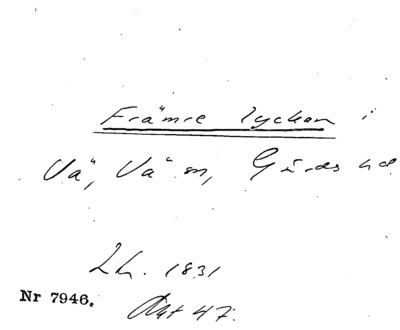 Främre lyckan i
Vä, Vä sn, Gärds hd
Lh. 1831
Nr 7946.
Akt 47.